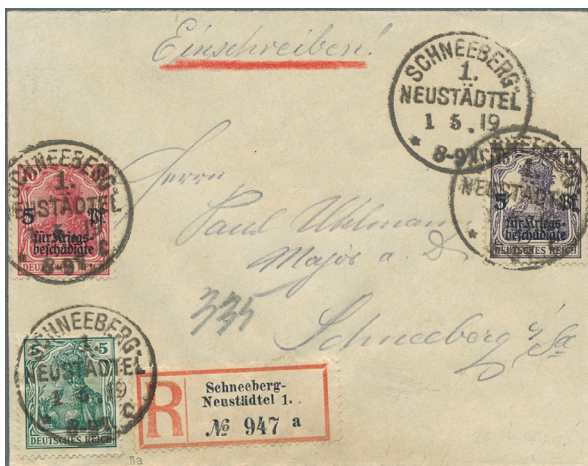 Einschreiben!
SCHNEEBERG-
1.
NEUSTÄDTEL
1 5. 19
* 8-9V. C
SCHNEEBERG-
1.
NEUSTÄDTEL
10
5 Pf
für Kriegs-
beschädigte
DEUTSCHES REICH
SCHNEEBERG-
NEUSTÄDTEL
15 15
5 Pf
für Kriegs-
beschädigte
DEUTSCHES REICH
Herrn
Paul Uhlmann
Major a. D.
335
Schneeberg i/Sa
SCHNEEBERG-
1.
NEUSTÄDTEL
5
DEUTSCHES REICH
R
Schneeberg-
Neustädtel 1.
№ 947 a
IIa